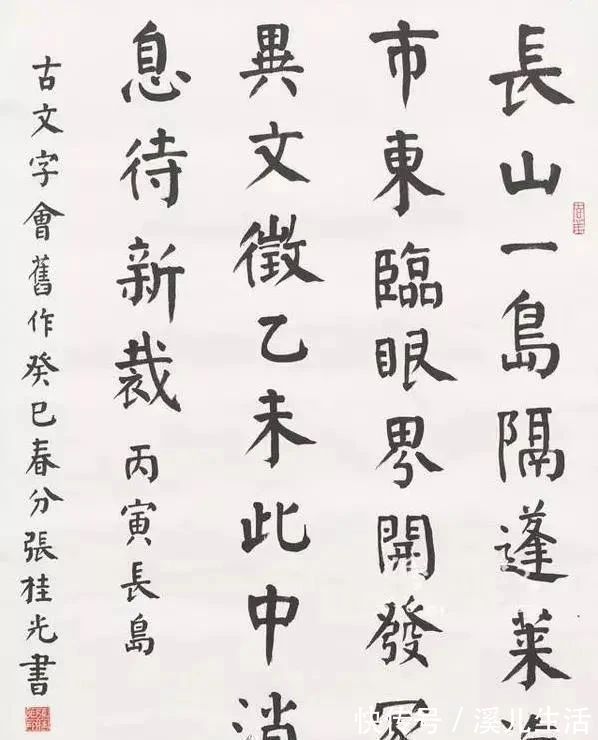 長山一島隔蓬萊
市東臨眼界開發
異文徵乙未此中消
息待新裁 丙寅長島
古文字會舊作癸巳春分張桂光書
快传号 / 溪儿生活